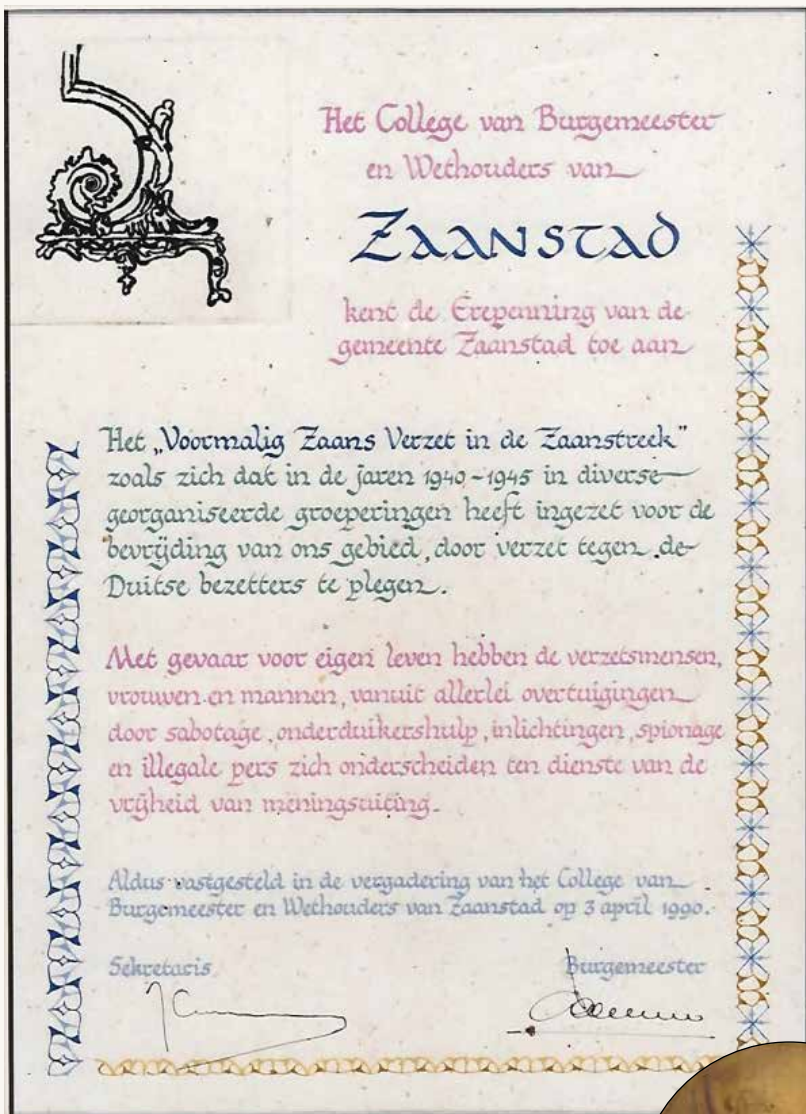 Het College van Burgemeester
en Wethouders van
ZAANSTAD
kent de Erepenning van de
gemeente Zaanstad toe aan
Het „Voormalig Zaans Verzet in de Zaanstreek”
zoals zich dat in de jaren 1940-1945 in diverse
georganiseerde groeperingen heeft ingezet voor de
bevrijding van ons gebied, door verzet tegen de
Duitse bezetters te plegen.
Met gevaar voor eigen leven hebben de verzetsmensen,
vrouwen en mannen, vanuit allerlei overtuigingen
door sabotage, onderduikershulp, inlichtingen, spionage
en illegale pers zich onderscheiden ten dienste van de
vrijheid van meningsuiting.
Aldus vastgesteld in de vergadering van het College van
Burgemeester en Wethouders van Zaanstad op 3 april 1990.
Sekretaris Burgemeester